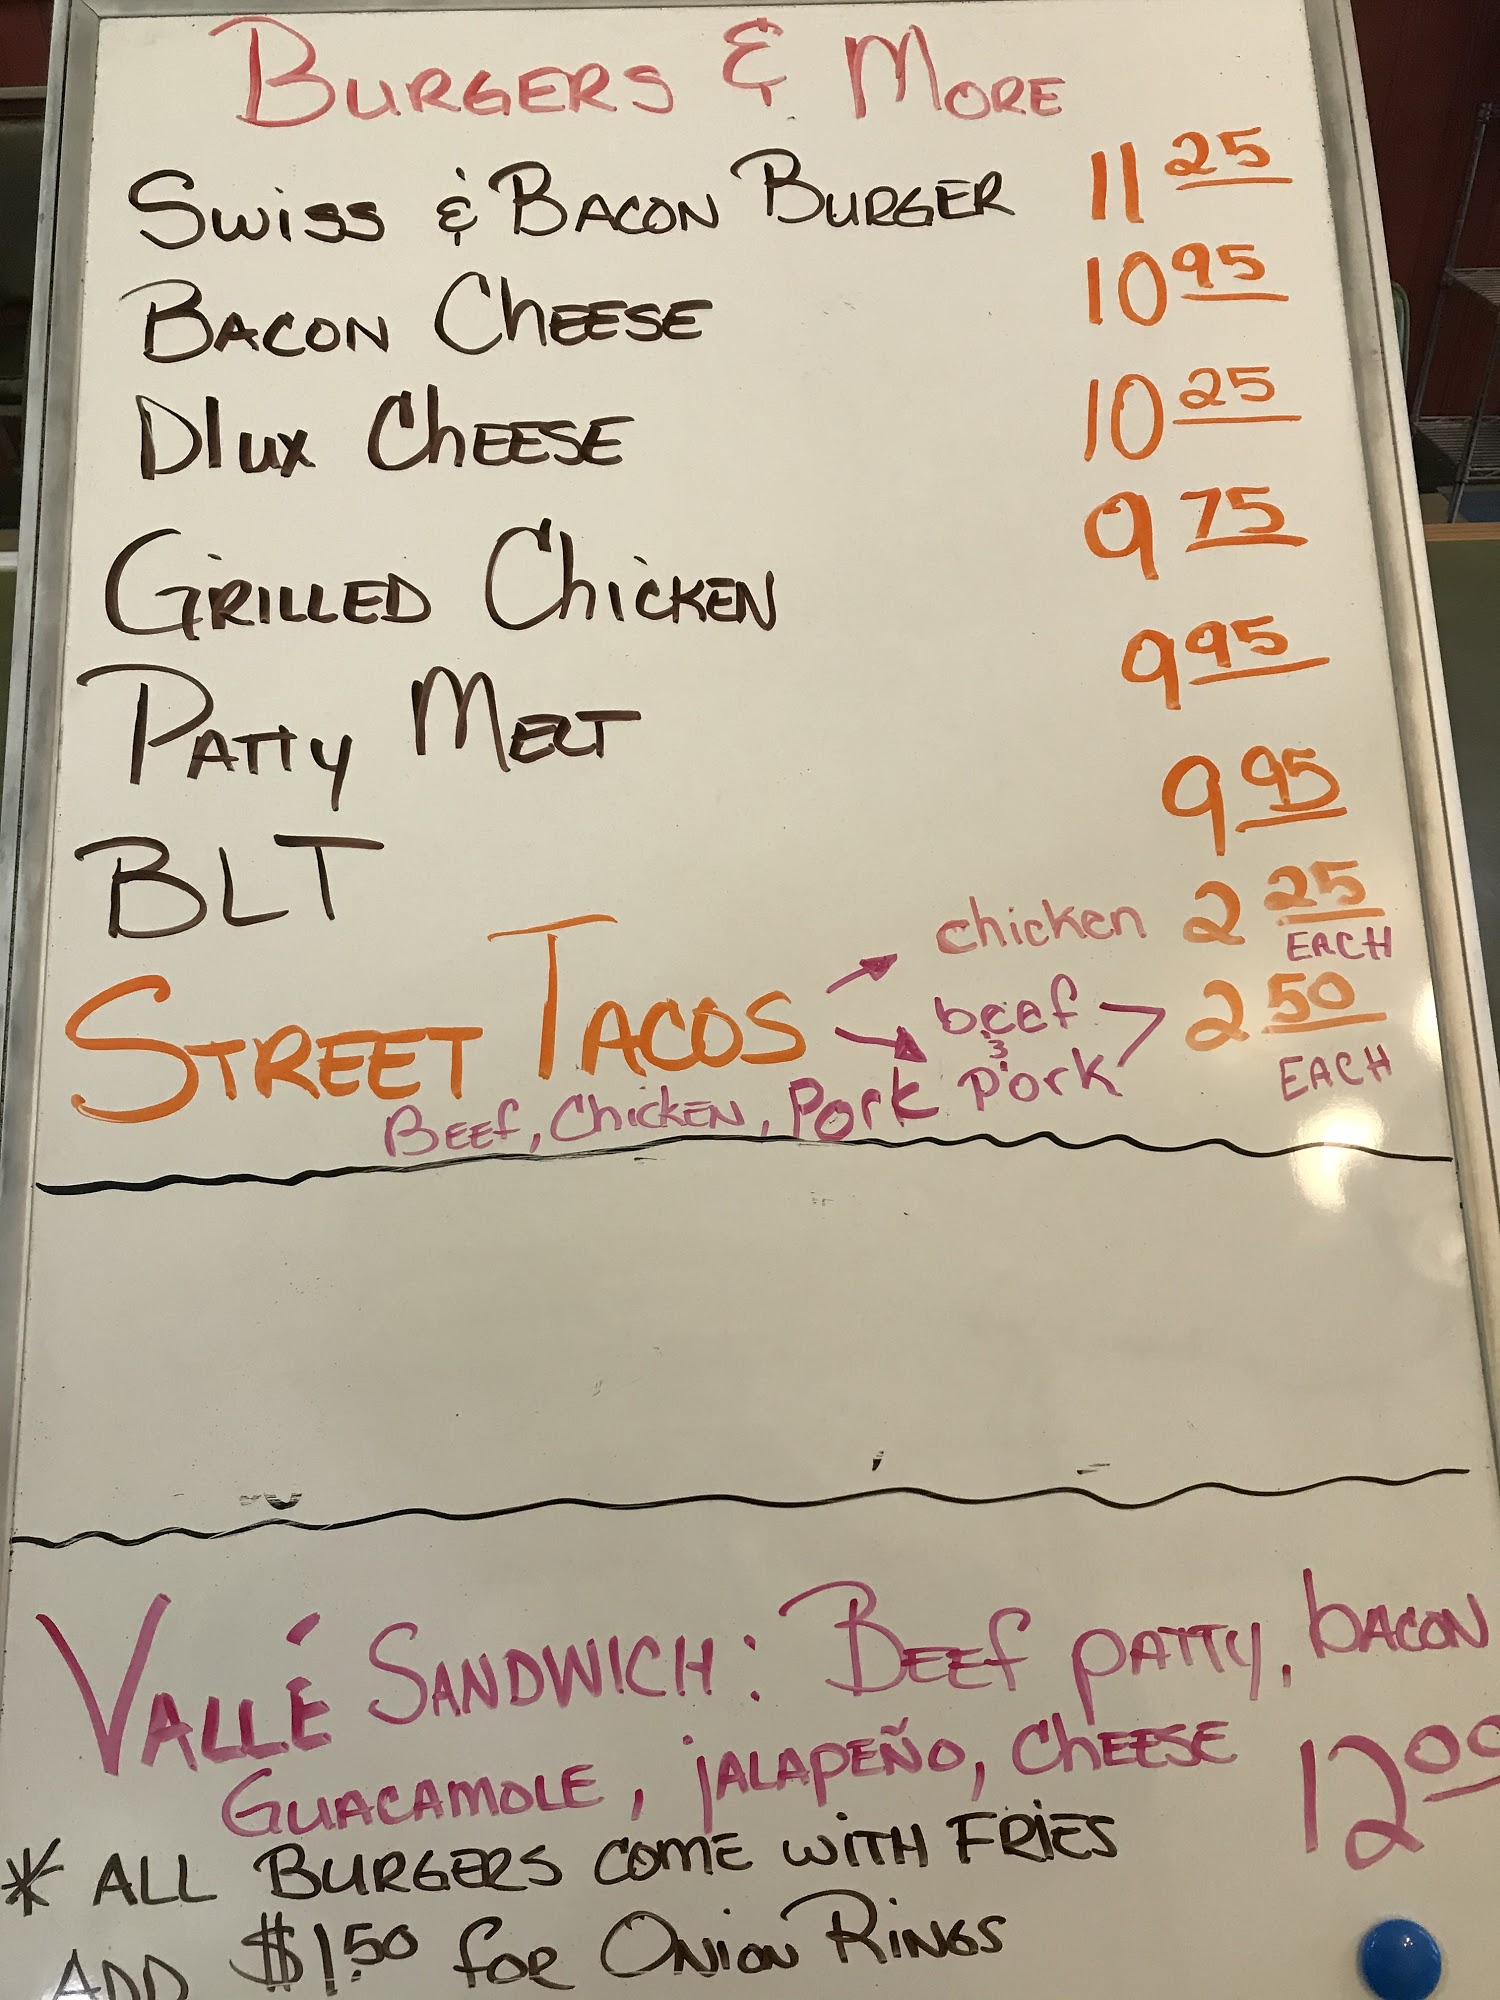 BURGERS & MORE
SWISS & BACON BURGER 11 25
BACON CHEESE 10 95
Dlux CHEESE 10 25
GRILLED CHICKEN 9 75
PATTY MELT 9 95
BLT 9 95
STREET TACOS chicken 2 25 EACH
beef & pork 2 50 EACH
BEEf, CHICKEN, PORK
VALLÉ SANDWICH: BEEf PATTY, bACON
GUACAMOLE, jALAPEÑO, CHEESE 12 00
* ALL BURGERS COME WITH FRIES
ADD $1.50 foR ONION RINGS